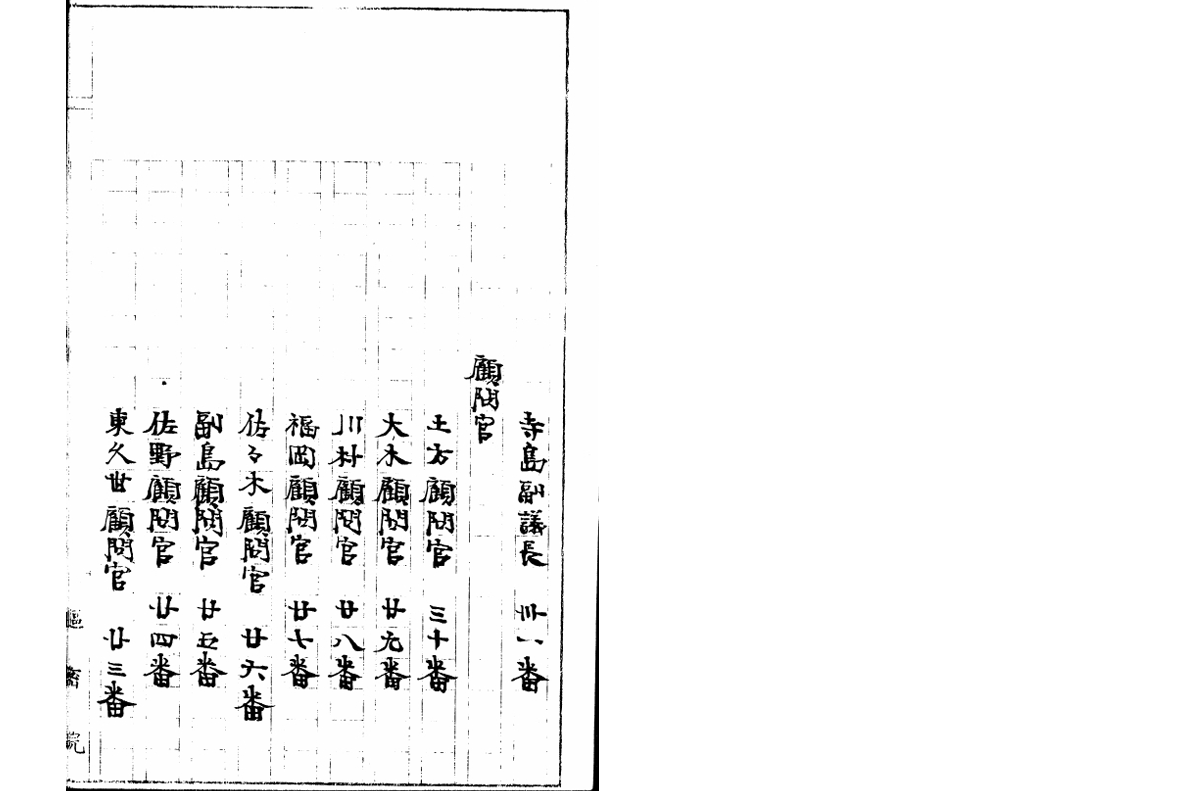 寺島副議長 卅一番
顧問官
土方顧問官 三十番
大木顧問官 廿九番
川村顧問官 廿八番
福岡顧問官 廿七番
佐々木顧問官 廿六番
副島顧問官 廿五番
佐野顧問官 廿四番
東久世顧問官 廿三番
樞密院